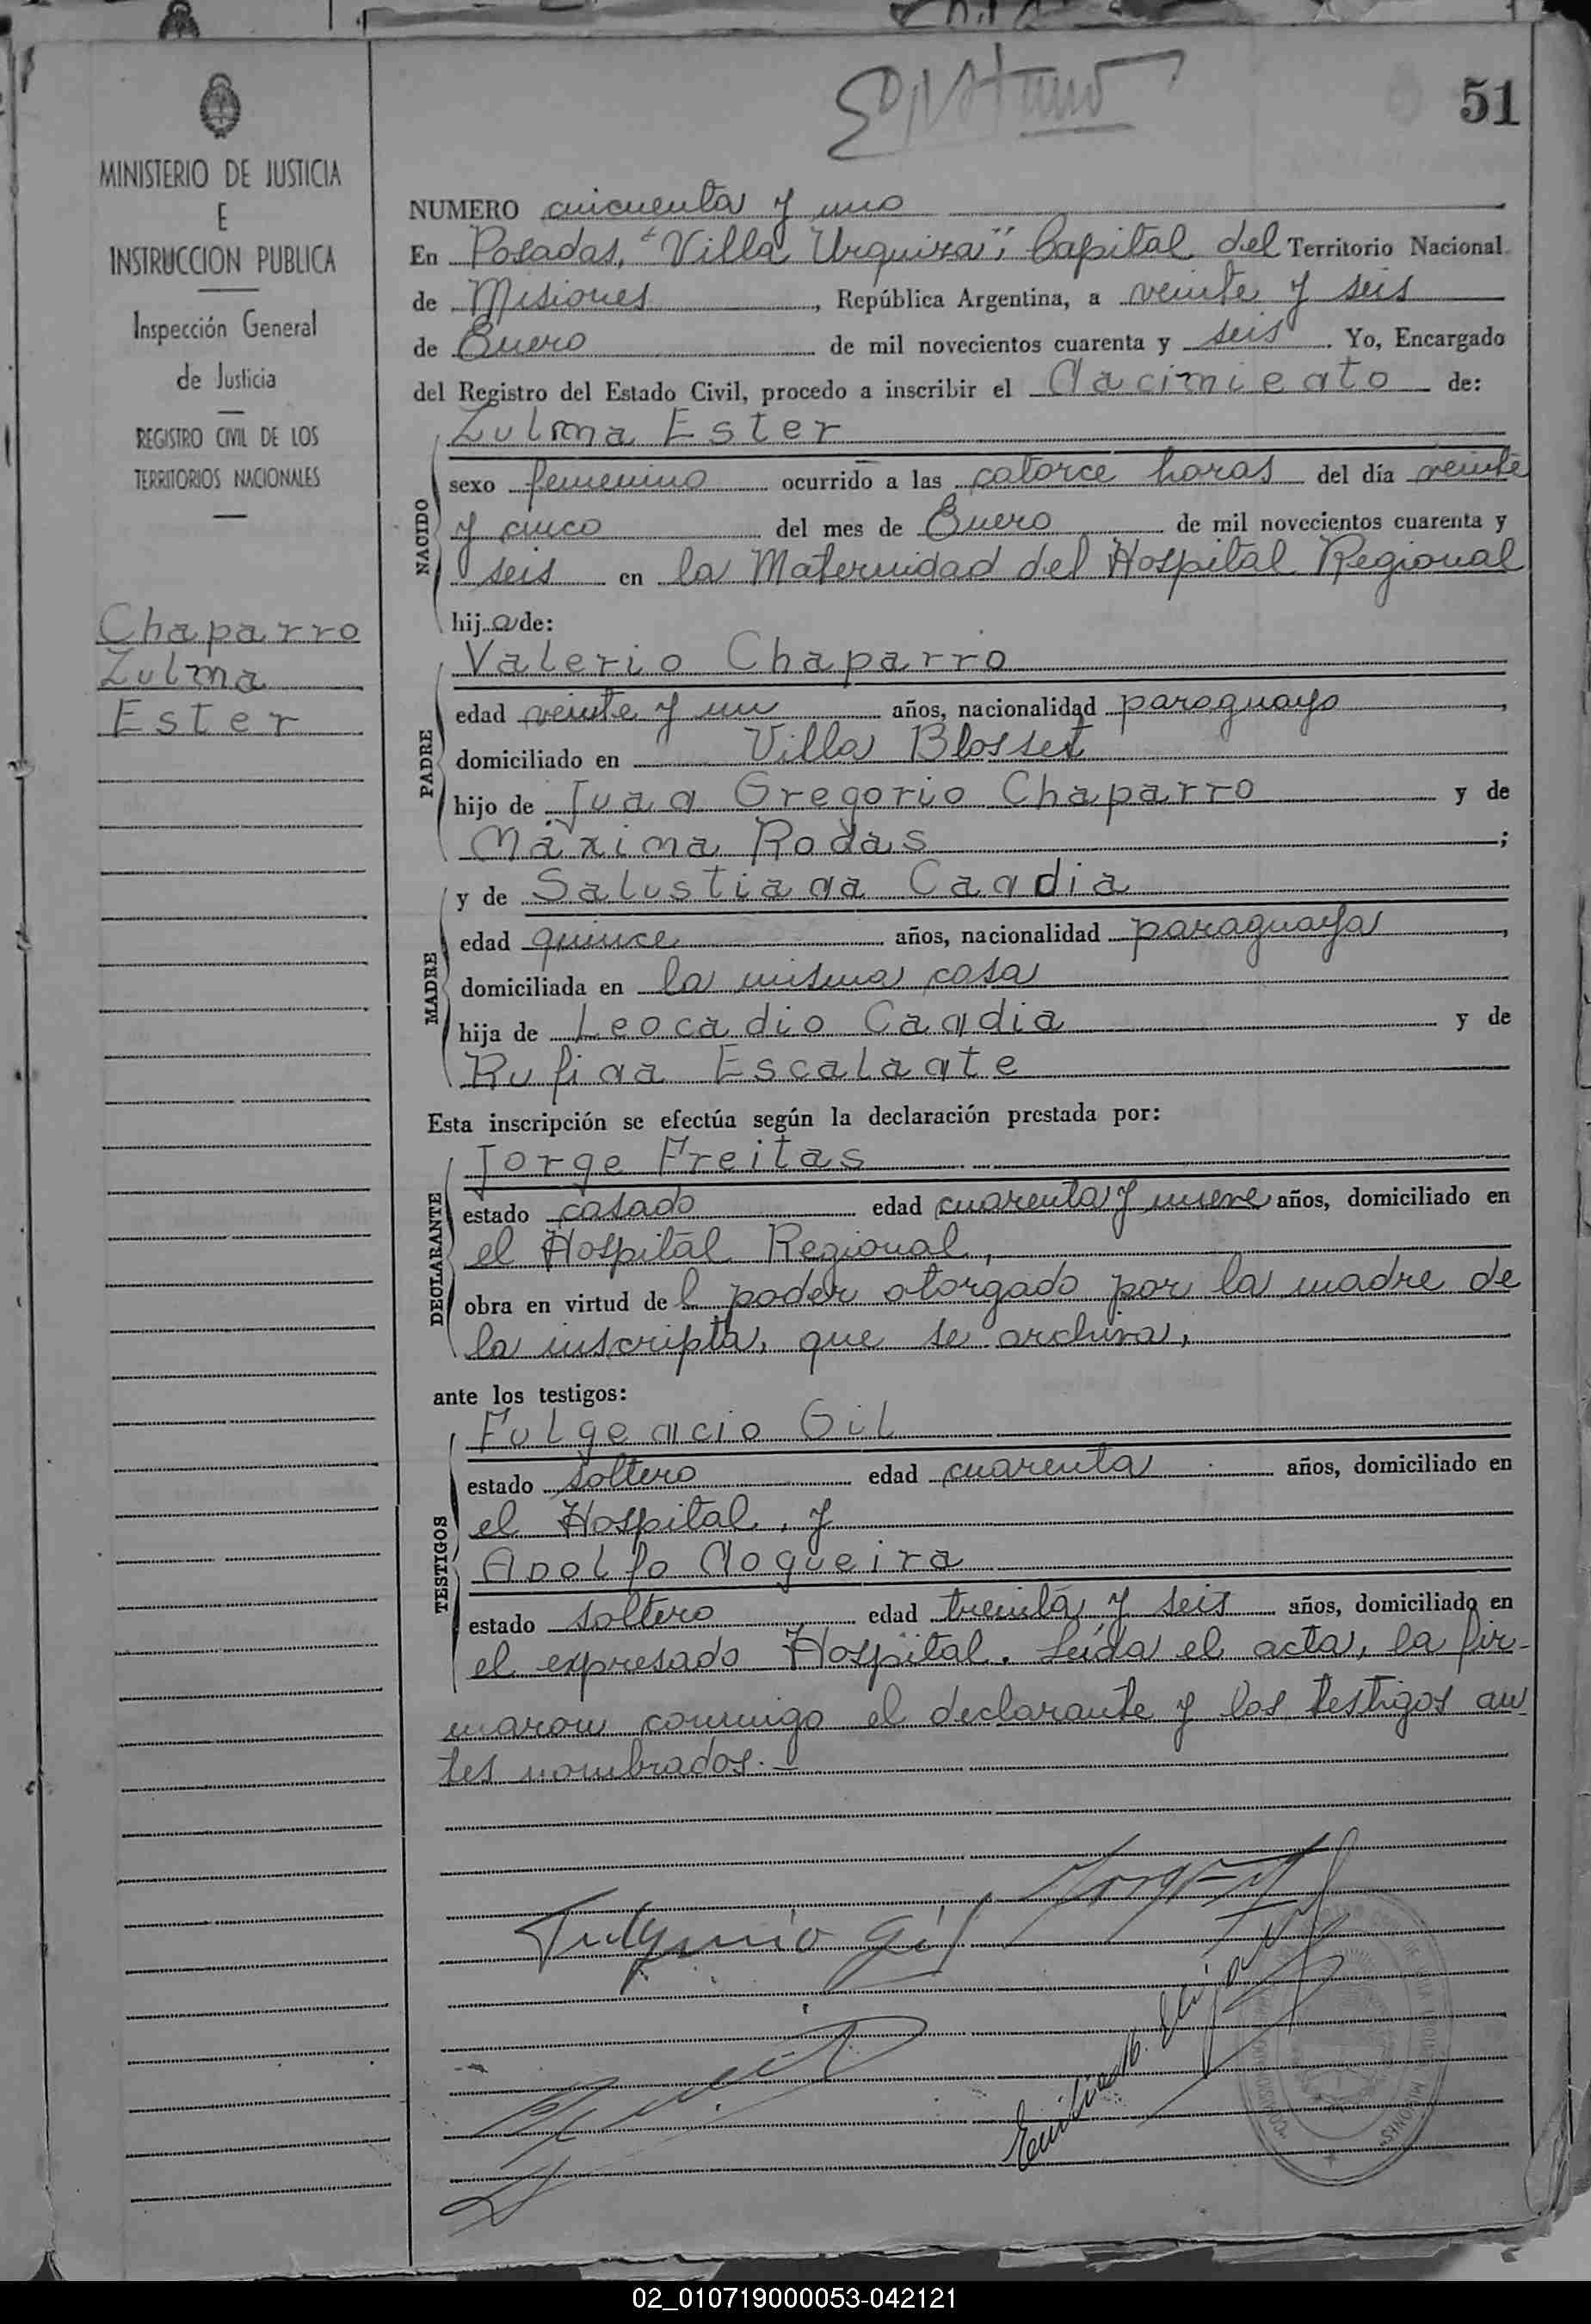 51
MINISTERIO DE JUSTICIA
E
INSTRUCCION PUBLICA
Inspección General
de Justicia
REGISTRO CIVIL DE LOS
TERRITORIOS NACIONALES
Chaparro
Zulma
Ester
NUMERO cincuenta y uno
En Posadas, "Villa Urquiza", Capital del Territorio Nacional
de Misiones, República Argentina, a veinte y seis
de Enero de mil novecientos cuarenta y seis. Yo, Encargado
del Registro del Estado Civil, procedo a inscribir el Nacimiento de:
Zulma Ester
NACIDO
sexo femenino ocurrido a las catorce horas del día veinte
y cinco del mes de Enero de mil novecientos cuarenta y
seis en la Maternidad del Hospital Regional
hija de:
Valerio Chaparro
PADRE
edad veinte y un años, nacionalidad paraguayo,
domiciliado en Villa Blosset
hijo de Juan Gregorio Chaparro y de
Máxima Rodas;
y de Salustiana Candia
MADRE
edad quince años, nacionalidad paraguaya,
domiciliada en la misma casa
hija de Leocadio Candia y de
Rufina Escalante
Esta inscripción se efectúa según la declaración prestada por:
Jorge Freitas
DECLARANTE
estado casado edad cuarenta y nueve años, domiciliado en
el Hospital Regional,
obra en virtud del poder otorgado por la madre de
la inscripta, que se archiva,
ante los testigos:
Fulgencio Gil
TESTIGOS
estado soltero edad cuarenta años, domiciliado en
el Hospital, y
Adolfo Nogueira
estado soltero edad treinta y seis años, domiciliado en
el expresado Hospital. Leída el acta, la fir-
maron conmigo el declarante y los testigos an-
tes nombrados.-
Fulgencio Gil
MISIONES
02_010719000053-042121